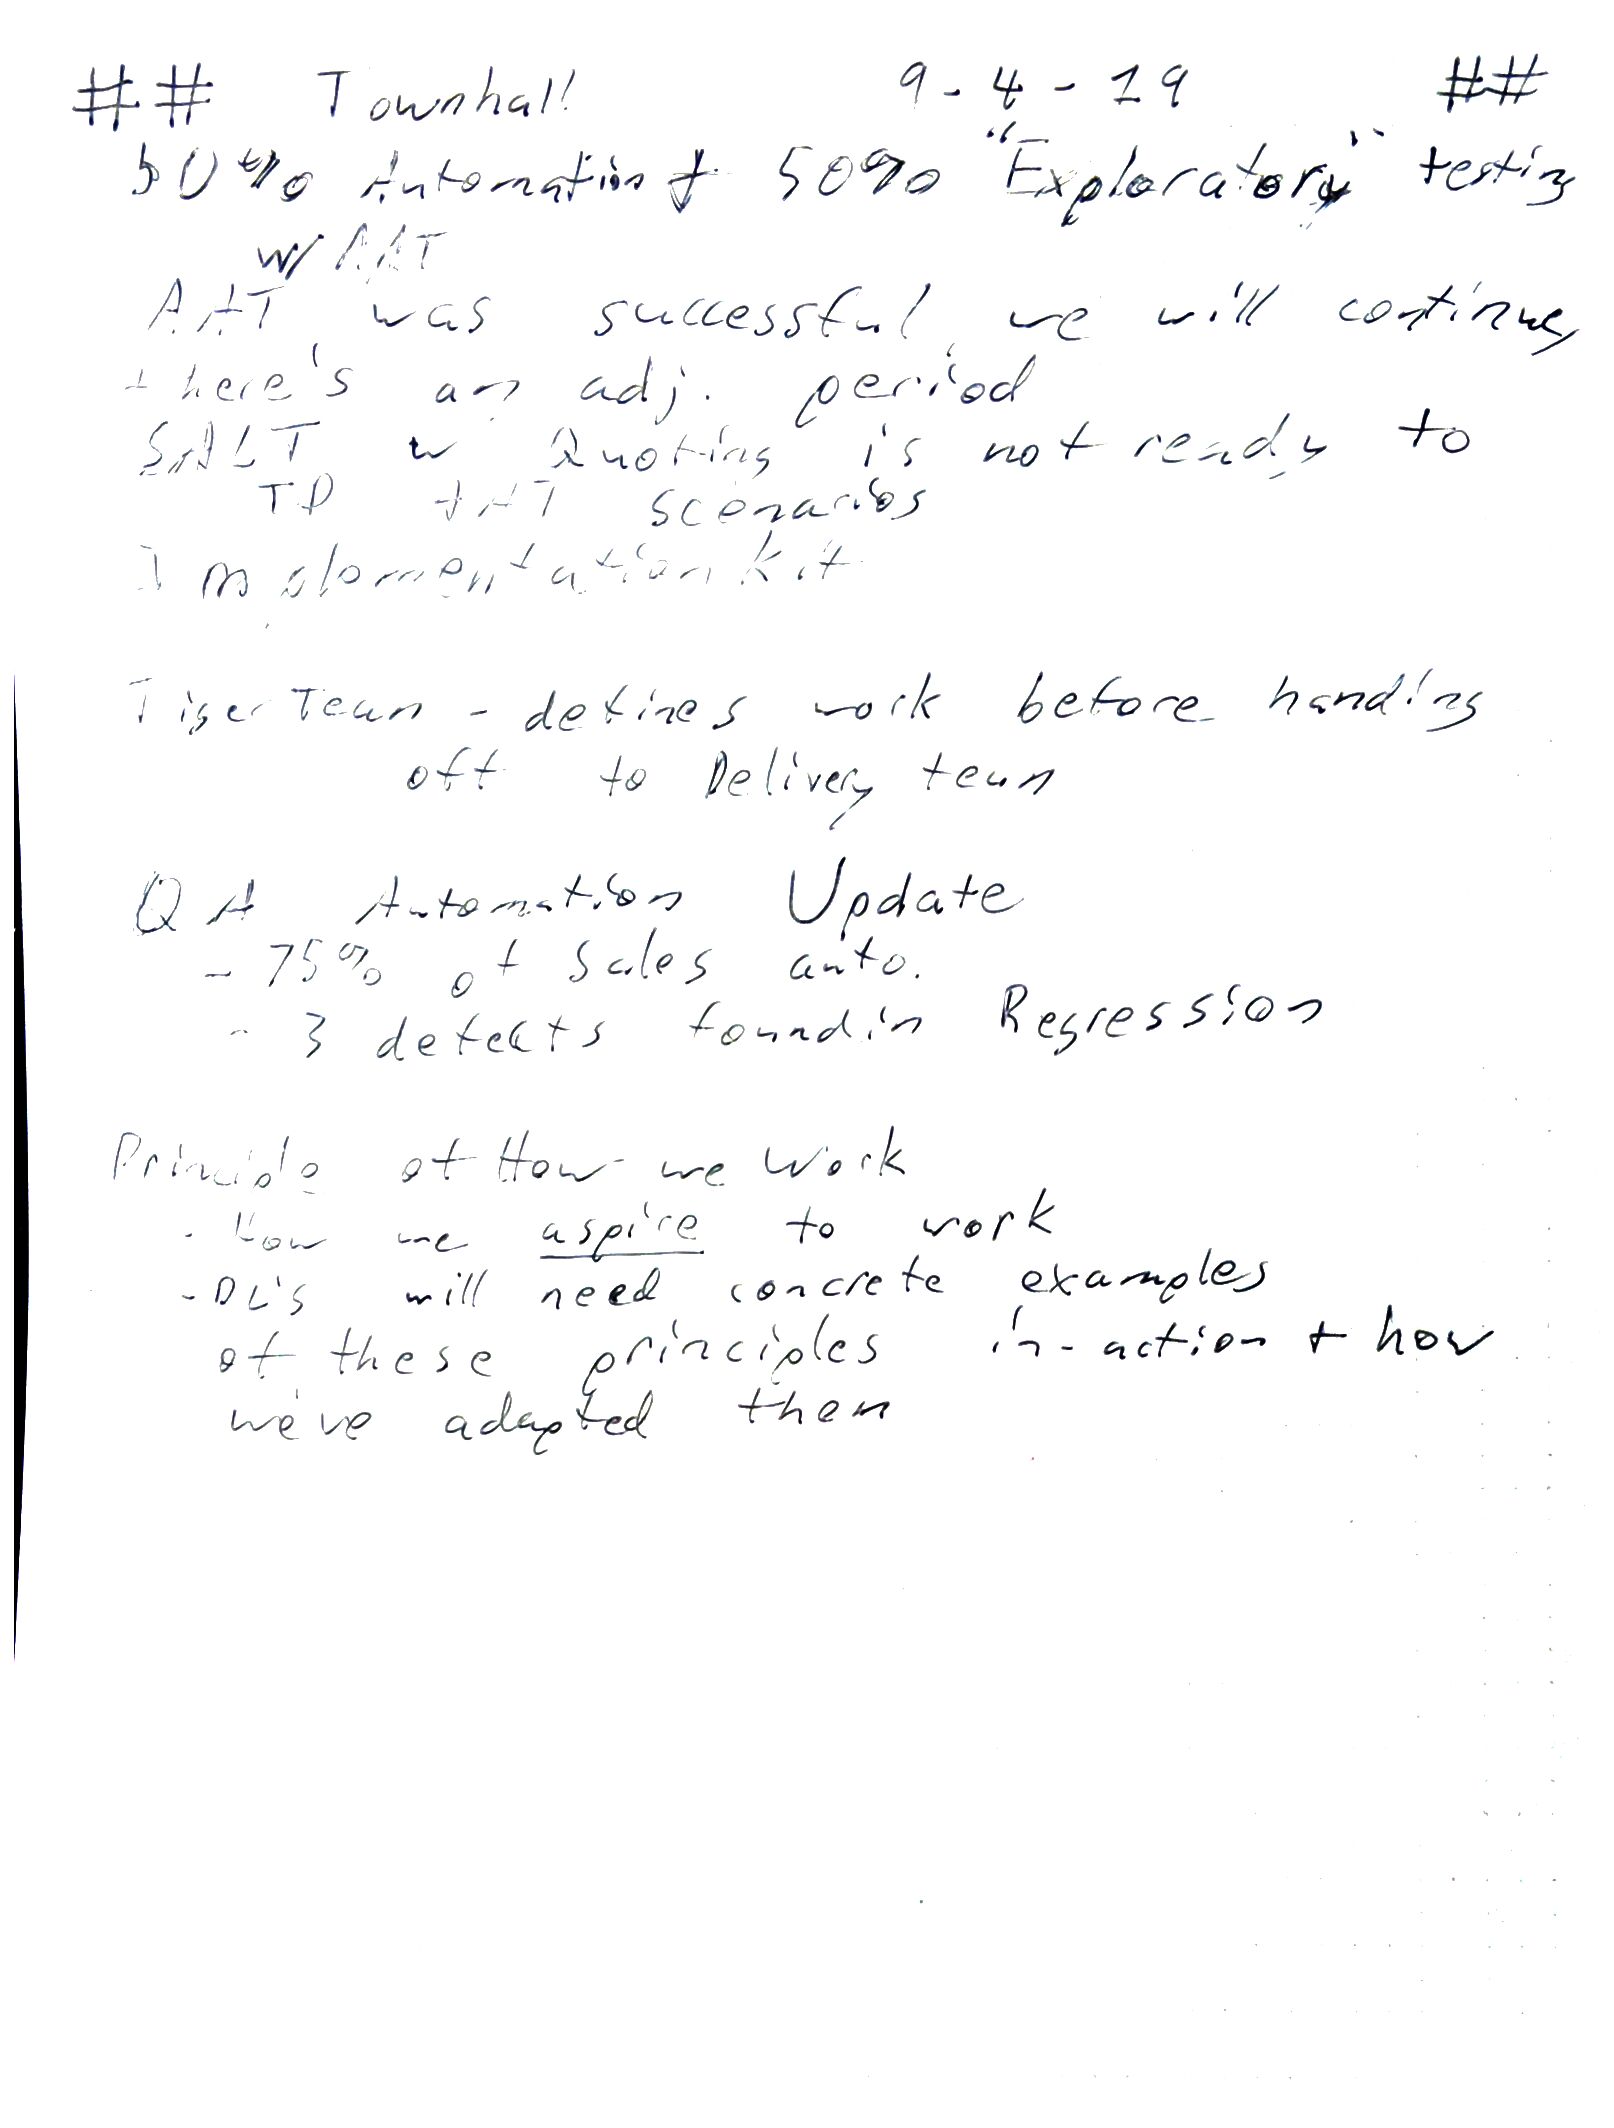 ## Townhall 9-4-19 ##
50% Automation + 50% "Exploratory" testing
w/ AAT
AAT was successful, we will continue,
there's an adj. period
SALT w Quoting is not ready to
TD AAT scenarios
Implementation kit
Tiger Team - defines work before handing
off to Delivery team
QA Automation Update
- 75% of Sales auto.
- 3 defects found in Regression
Principle of How we Work
- How we aspire to work
- DL's will need concrete examples
of these principles in-action + how
we've adapted them